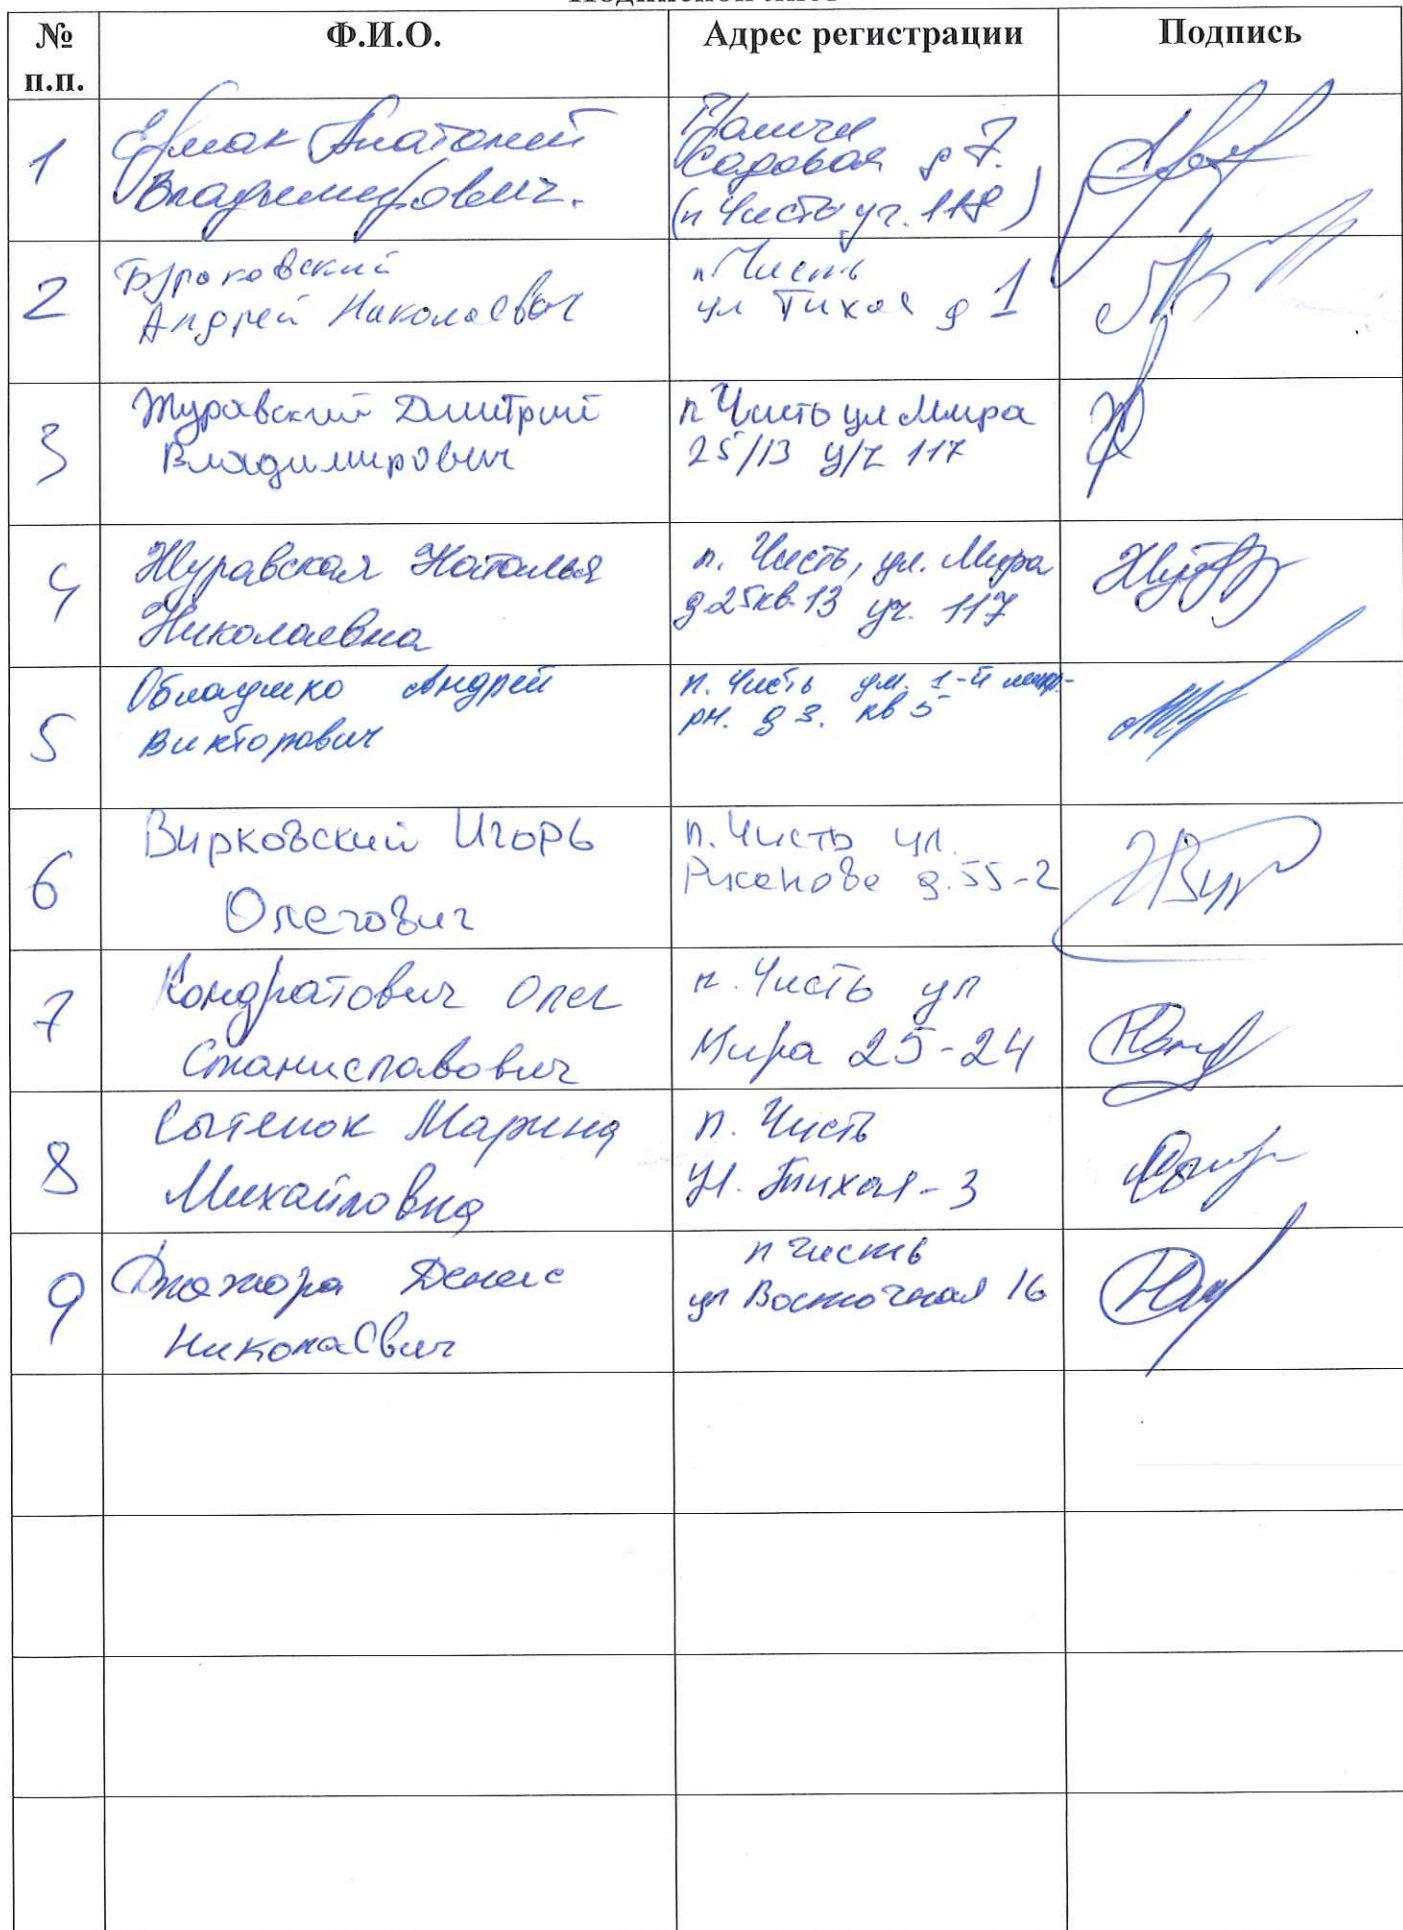 Подписной лист
№ п.п. Ф.И.О. Адрес регистрации Подпись
1 Ермак Анатолий
Владимирович.
Садовая д 7.
(п Чисть уч. 118)
2 Бураковский
Андрей Николаевич
п Чисть
ул Тихая д 1
3 Журавский Дмитрий
Владимирович
п Чисть ул Мира
25/13 у/ч 117
4 Журавская Наталья
Николаевна
п. Чисть, ул. Мира
д 25 кв 13 уч. 117
5 Облаушко Андрей
Викторович
п. Чисть ул. 1-й мкр-
рн. д 3. кв 5
6 Вирковский Игорь
Олегович
п. Чисть ул.
д. 55-2
7 Кондратович Олег
Станиславович
п. Чисть ул
Мира 25-24
8 Сытенок Марина
Михайловна
п. Чисть
ул. Тихая-3
9 Денис
Николаевич
п Чисть
ул Восточная 16